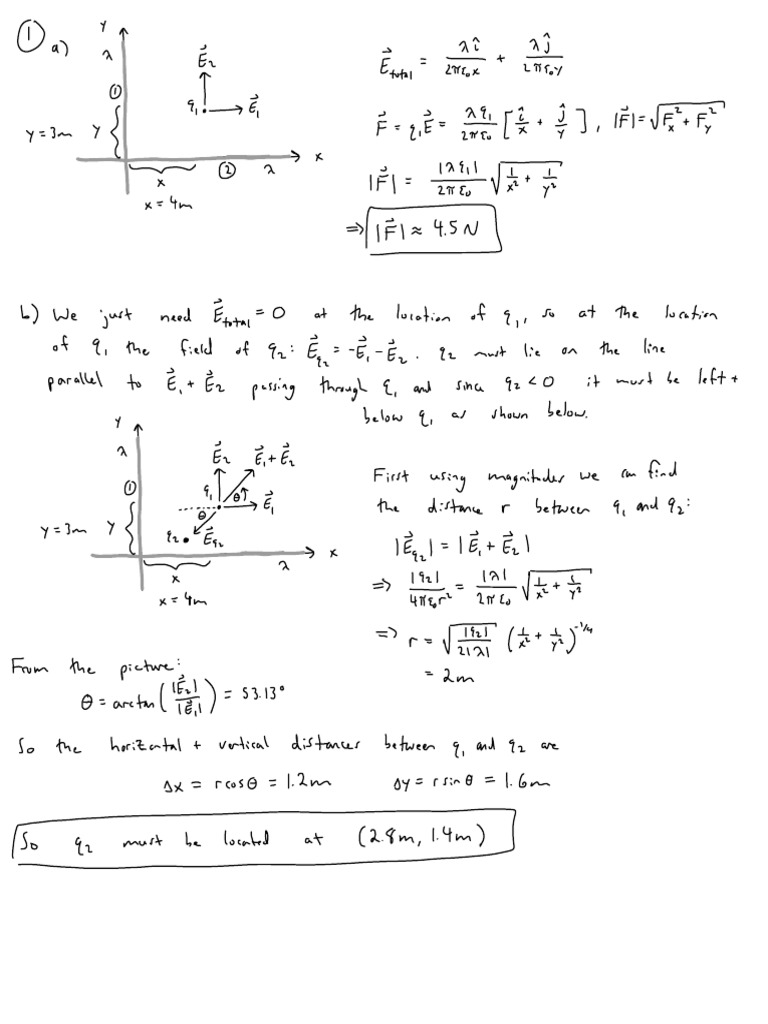 ① a)
y
λ
①
y = 3m y
x
x = 4m
② λ x
E⃗₂
q₁ E⃗₁
E⃗total = λî/2πε₀x + λĵ/2πε₀y
F⃗ = q₁E⃗ = λq₁/2πε₀ [î/x + ĵ/y], |F⃗| = √(Fx² + Fy²)
|F⃗| = |λq₁|/2πε₀ √(1/x² + 1/y²)
⇒ |F⃗| ≈ 4.5 N
b) We just need E⃗total = 0 at the location of q₁, so at the location
of q₁ the field of q₂: E⃗q₂ = -E⃗₁ - E⃗₂. q₂ must lie on the line
parallel to E⃗₁ + E⃗₂ passing through q₁ and since q₂ < 0 it must be left +
below q₁ as shown below.
y
λ
①
y = 3m y
x
x = 4m
λ x
E⃗₂ E⃗₁ + E⃗₂
q₁ θ E⃗₁
θ
q₂ E⃗q₂
First using magnitudes we can find
the distance r between q₁ and q₂:
|E⃗q₂| = |E⃗₁ + E⃗₂|
⇒ |q₂|/4πε₀r² = |λ|/2πε₀ √(1/x² + 1/y²)
⇒ r = √(|q₂|/2|λ|) (1/x² + 1/y²)^-1/4
= 2m
From the picture:
θ = arctan(|E⃗₂|/|E⃗₁|) = 53.13°
So the horizontal + vertical distances between q₁ and q₂ are
Δx = r cosθ = 1.2m Δy = r sinθ = 1.6m
So q₂ must be located at (2.8m, 1.4m)